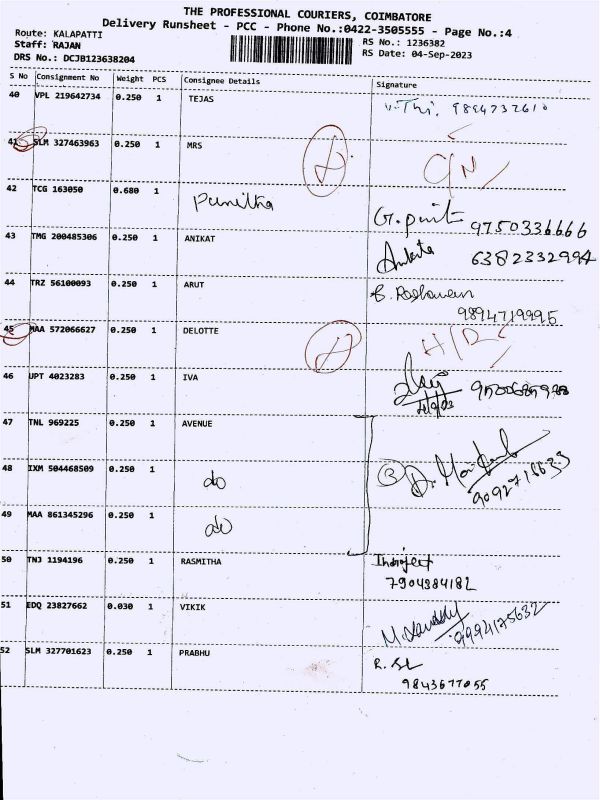 THE PROFESSIONAL COURIERS, COIMBATORE
Delivery Runsheet - PCC - Phone No.:0422-3505555 - Page No.:4
Route: KALAPATTI
Staff: RAJAN
DRS No.: DCJB123638204
RS No.: 1236382
RS Date: 04-Sep-2023
S No Consignment No Weight PCS Consignee Details Signature
40 VPL 219642734 0.250 1 TEJAS
41 SLM 327463963 0.250 1 MRS
42 TCG 163050 0.680 1 Punitha 9750336666
43 TMG 200485306 0.250 1 ANIKAT 6382332994
44 TRZ 56100093 0.250 1 ARUT 9894719995
45 MAA 572066627 0.250 1 DELOTTE
46 UPT 4023283 0.250 1 IVA 4/9/23
47 TNL 969225 0.250 1 AVENUE
48 IXM 504468509 0.250 1 do
49 MAA 861345296 0.250 1 do
50 TNJ 1194196 0.250 1 RASMITHA Indrajeet 7904384182
51 EDQ 23827662 0.030 1 VIKIK 9994175632
52 SLM 327701623 0.250 1 PRABHU 9843677055